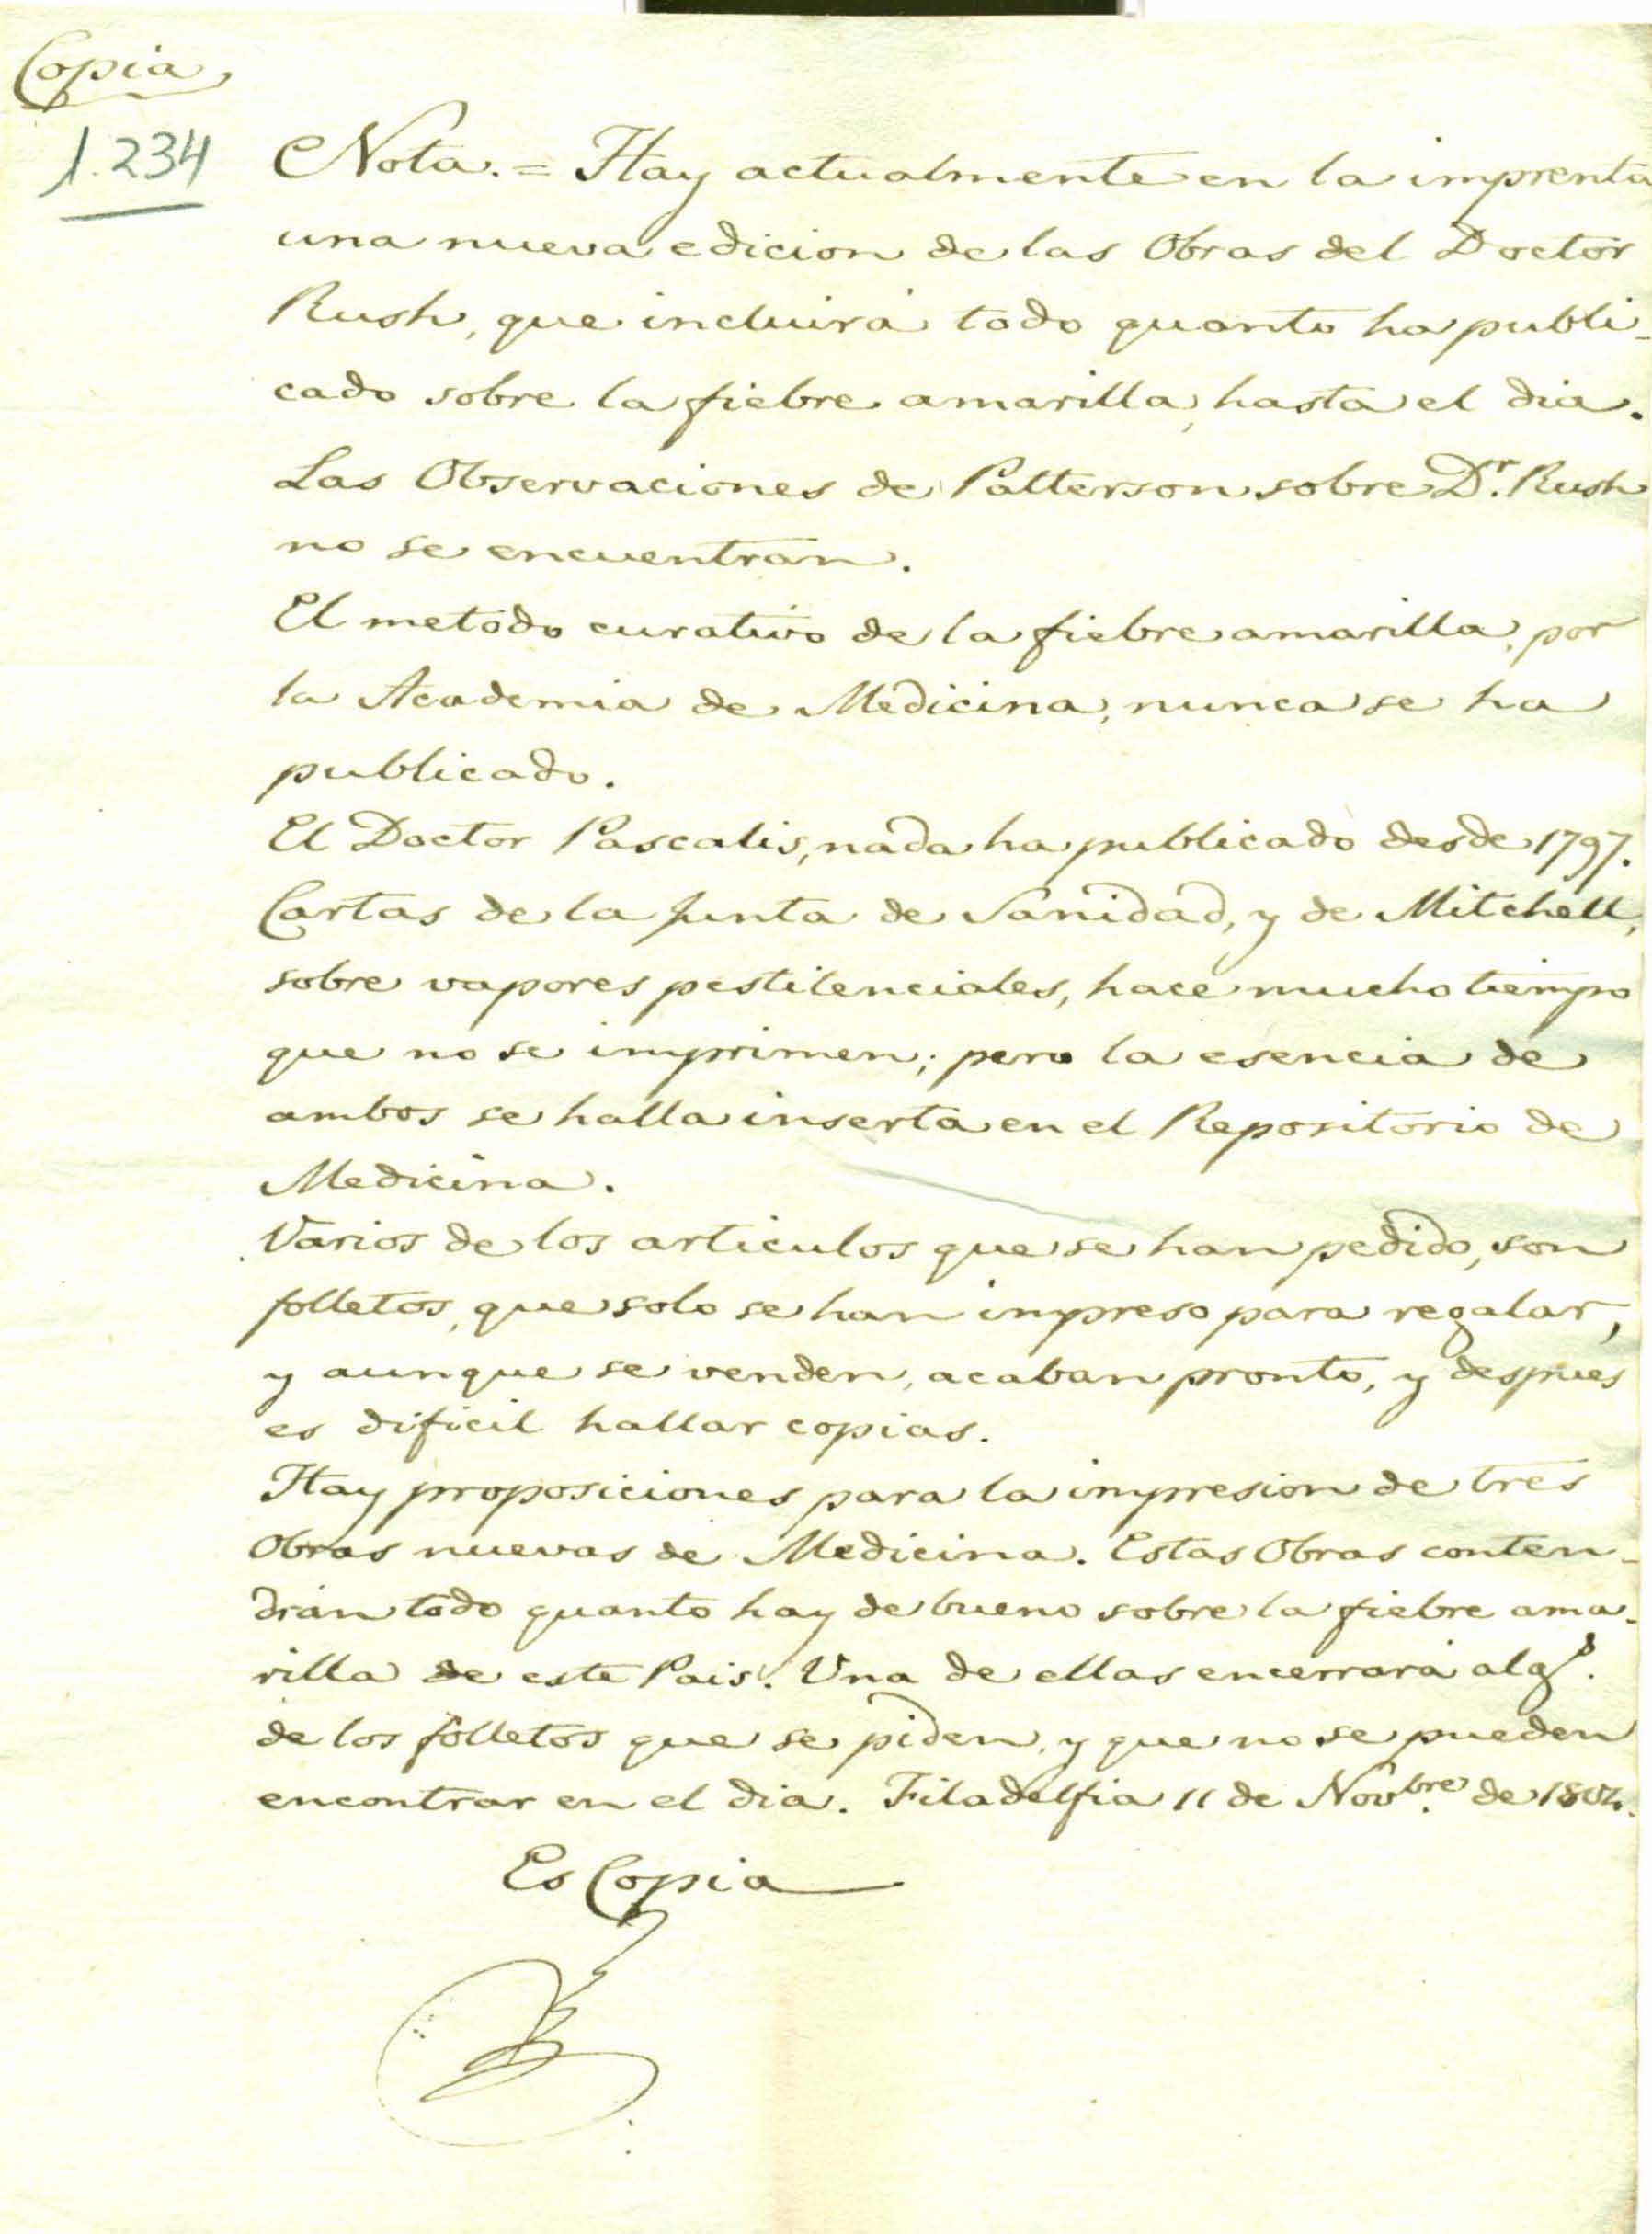 Copia
1.234
Nota. = Hay actualmente en la imprenta
una nueva edicion de las Obras del Doctor
Rush, que incluirá todo quanto ha publi-
cado sobre la fiebre amarilla, hasta el dia.
Las Observaciones de Patterson sobre Dr. Rush
no se encuentran.
El metodo curativo de la fiebre amarilla, por
la Academia de Medicina, nunca se ha
publicado.
El Doctor Pascalis, nada ha publicado desde 1797.
Cartas de la Junta de Sanidad, y de Mitchell,
sobre vapores pestilenciales, hace mucho tiempo
que no se imprimen; pero la esencia de
ambos se halla inserta en el Repositorio de
Medicina.
Varios de los articulos que se han pedido, son
folletos, que solo se han impreso para regalar,
y aunque se venden, acaban pronto, y despues
es dificil hallar copias.
Hay proposiciones para la impresion de tres
Obras nuevas de Medicina. Estas Obras conten-
drán todo quanto hay de bueno sobre la fiebre ama-
rilla de este Pais. Una de ellas encerrará algs.
de los folletos que se piden, y que no se pueden
encontrar en el dia. Filadelfia 11 de Novbre. de 1804.
Es Copia